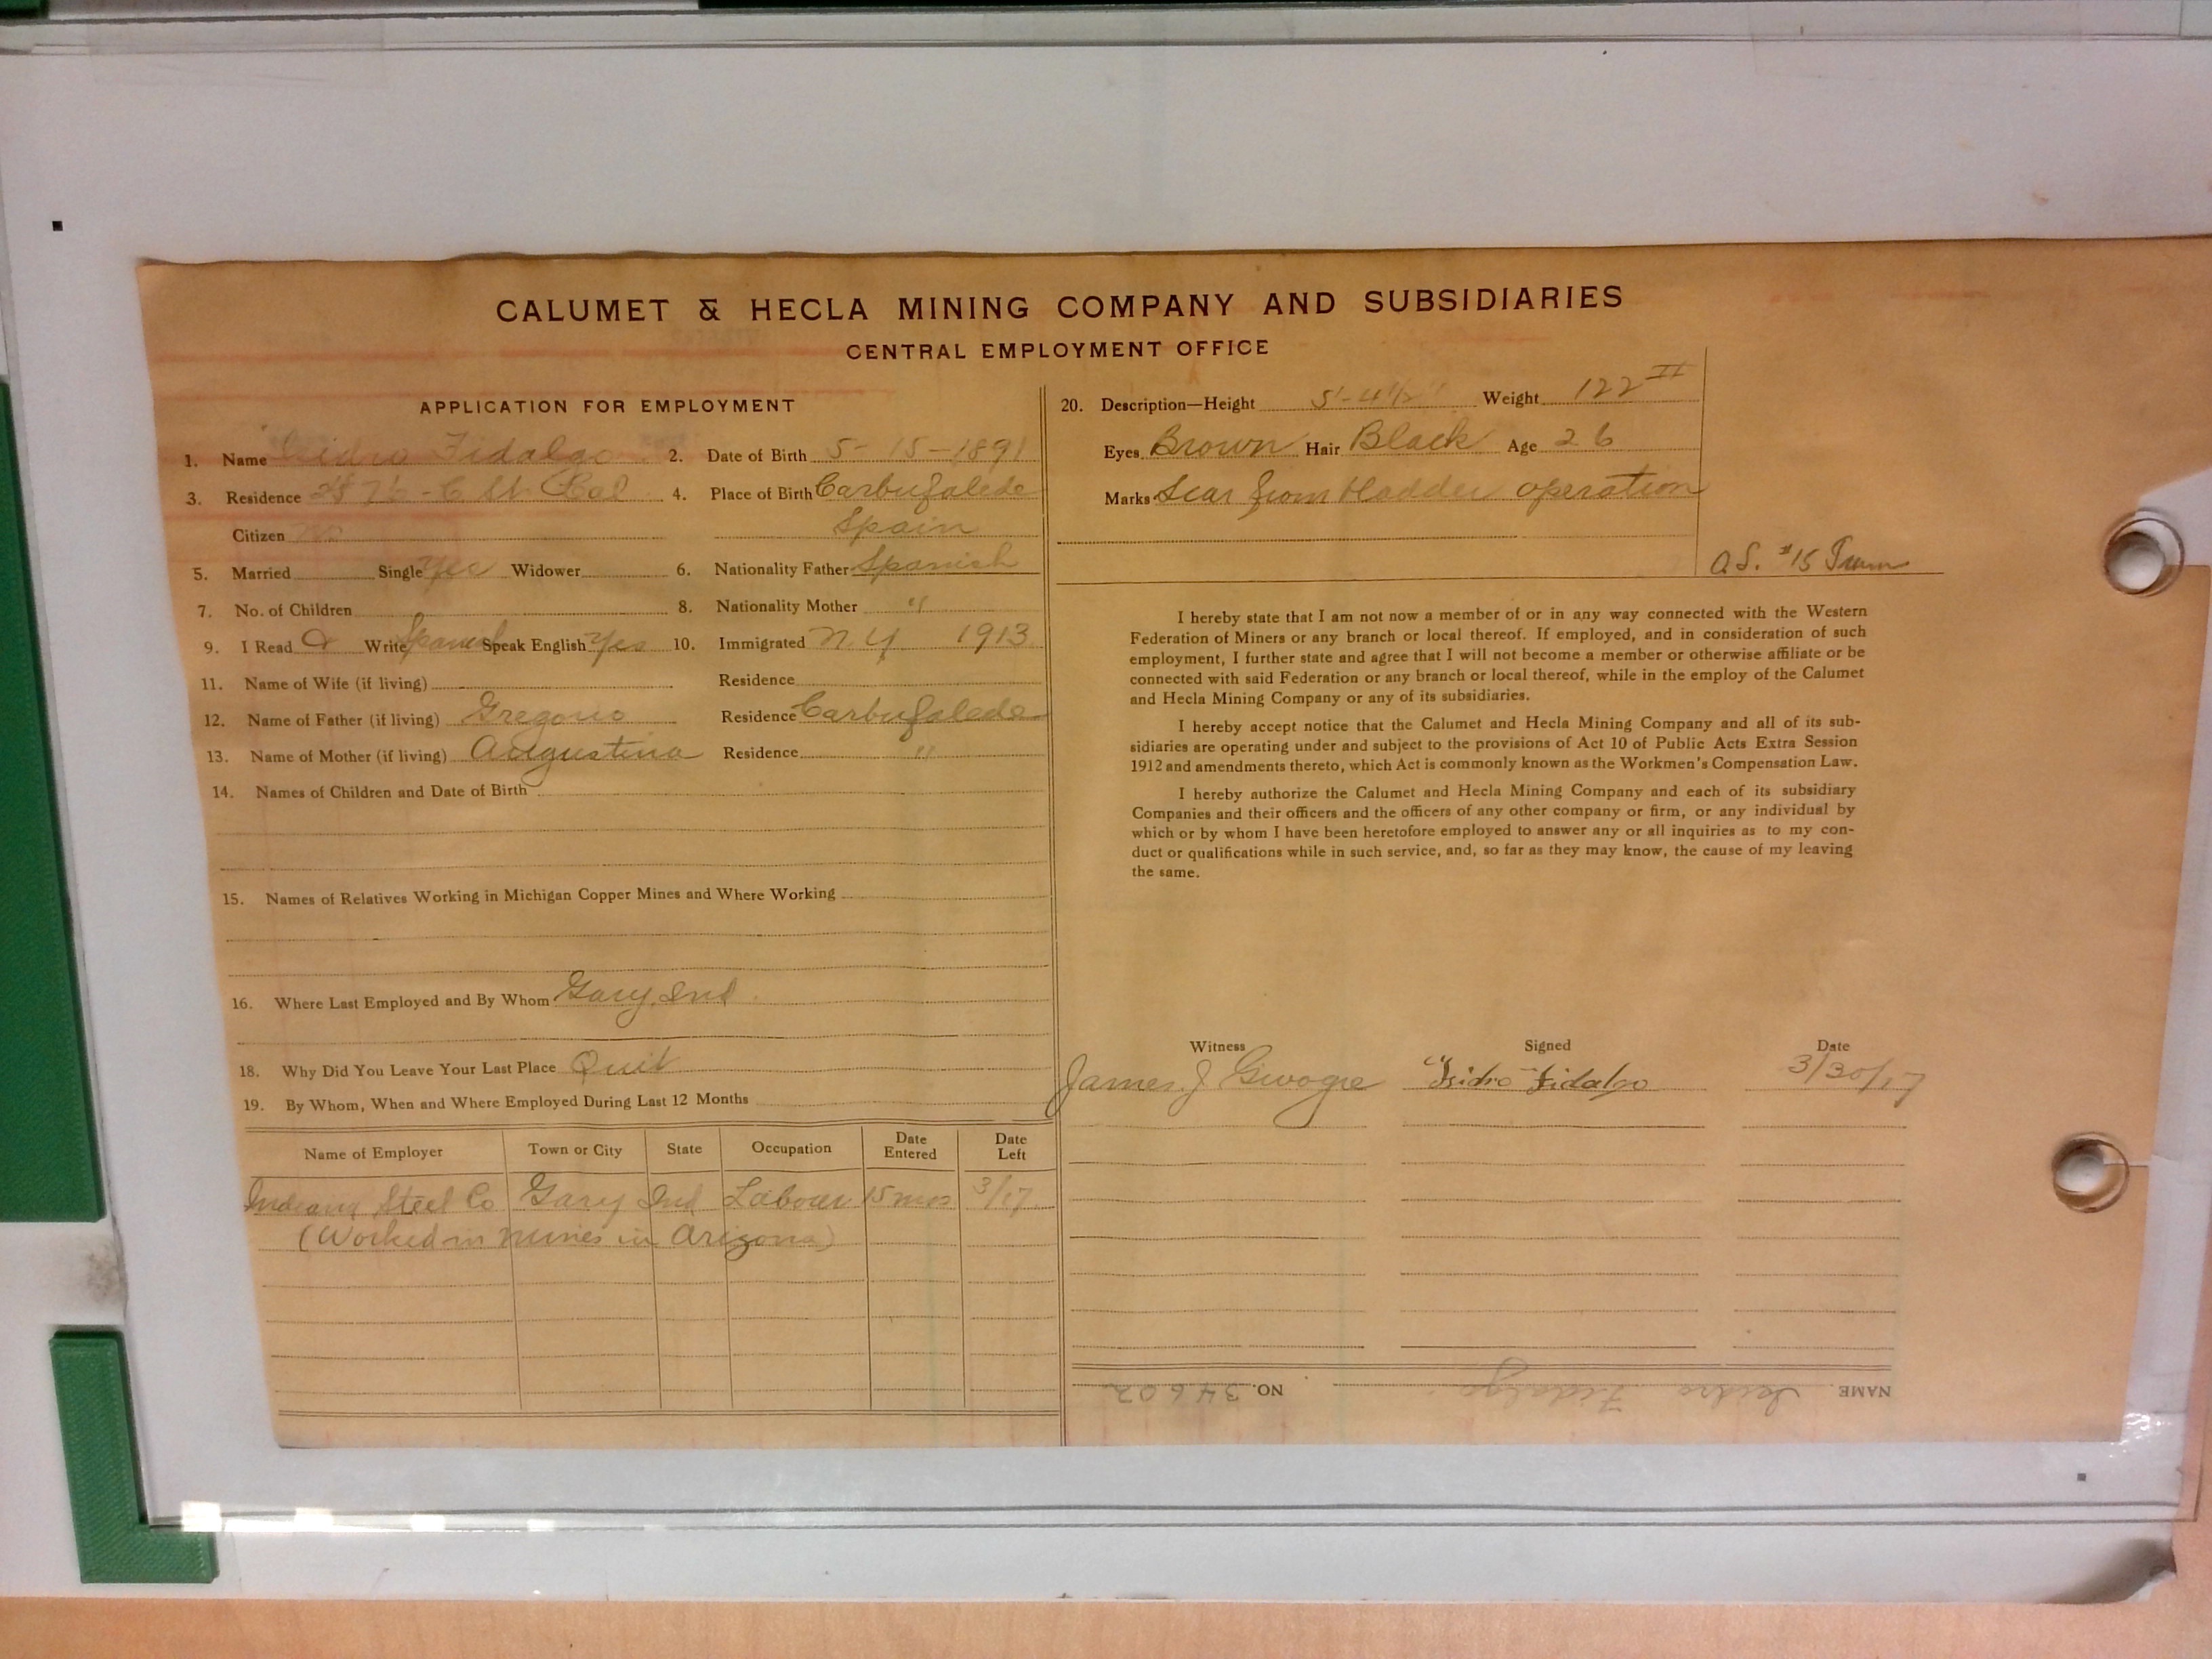 CALUMET & HECLA MINING COMPANY AND SUBSIDIARIES
CENTRAL EMPLOYMENT OFFICE
APPLICATION FOR EMPLOYMENT
1. Name Isidro Fidalgo 2. Date of Birth 5-15-1891
3. Residence - C St. Cal 4. Place of Birth Carbufalede
Citizen no Spain
5. Married Single Yes Widower 6. Nationality Father Spanish
7. No. of Children 8. Nationality Mother "
9. I Read & Write Spanish Speak English Yes 10. Immigrated N.Y 1913
11. Name of Wife (if living) Residence
12. Name of Father (if living) Gregorio Residence Carbufalede
13. Name of Mother (if living) Augustina Residence "
14. Names of Children and Date of Birth
15. Names of Relatives Working in Michigan Copper Mines and Where Working
16. Where Last Employed and By Whom Gary, Ind
18. Why Did You Leave Your Last Place Quit
19. By Whom, When and Where Employed During Last 12 Months
Name of Employer Town or City State Occupation Date Entered Date Left
Indiana Steel Co Gary Ind Labour 15 mos 3/17
(Worked in mines in Arizona)
20. Description—Height 5'-4½" Weight 122
Eyes Brown Hair Black Age 26
Marks Scar from bladder operation
O.S. #15
I hereby state that I am not now a member of or in any way connected with the Western
Federation of Miners or any branch or local thereof. If employed, and in consideration of such
employment, I further state and agree that I will not become a member or otherwise affiliate or be
connected with said Federation or any branch or local thereof, while in the employ of the Calumet
and Hecla Mining Company or any of its subsidiaries.
I hereby accept notice that the Calumet and Hecla Mining Company and all of its sub-
sidiaries are operating under and subject to the provisions of Act 10 of Public Acts Extra Session
1912 and amendments thereto, which Act is commonly known as the Workmen's Compensation Law.
I hereby authorize the Calumet and Hecla Mining Company and each of its subsidiary
Companies and their officers and the officers of any other company or firm, or any individual by
which or by whom I have been heretofore employed to answer any or all inquiries as to my con-
duct or qualifications while in such service, and, so far as they may know, the cause of my leaving
the same.
Witness Signed Date
James J Isidro Fidalgo 3/30/17
NAME Isidro Fidalgo NO. 34602